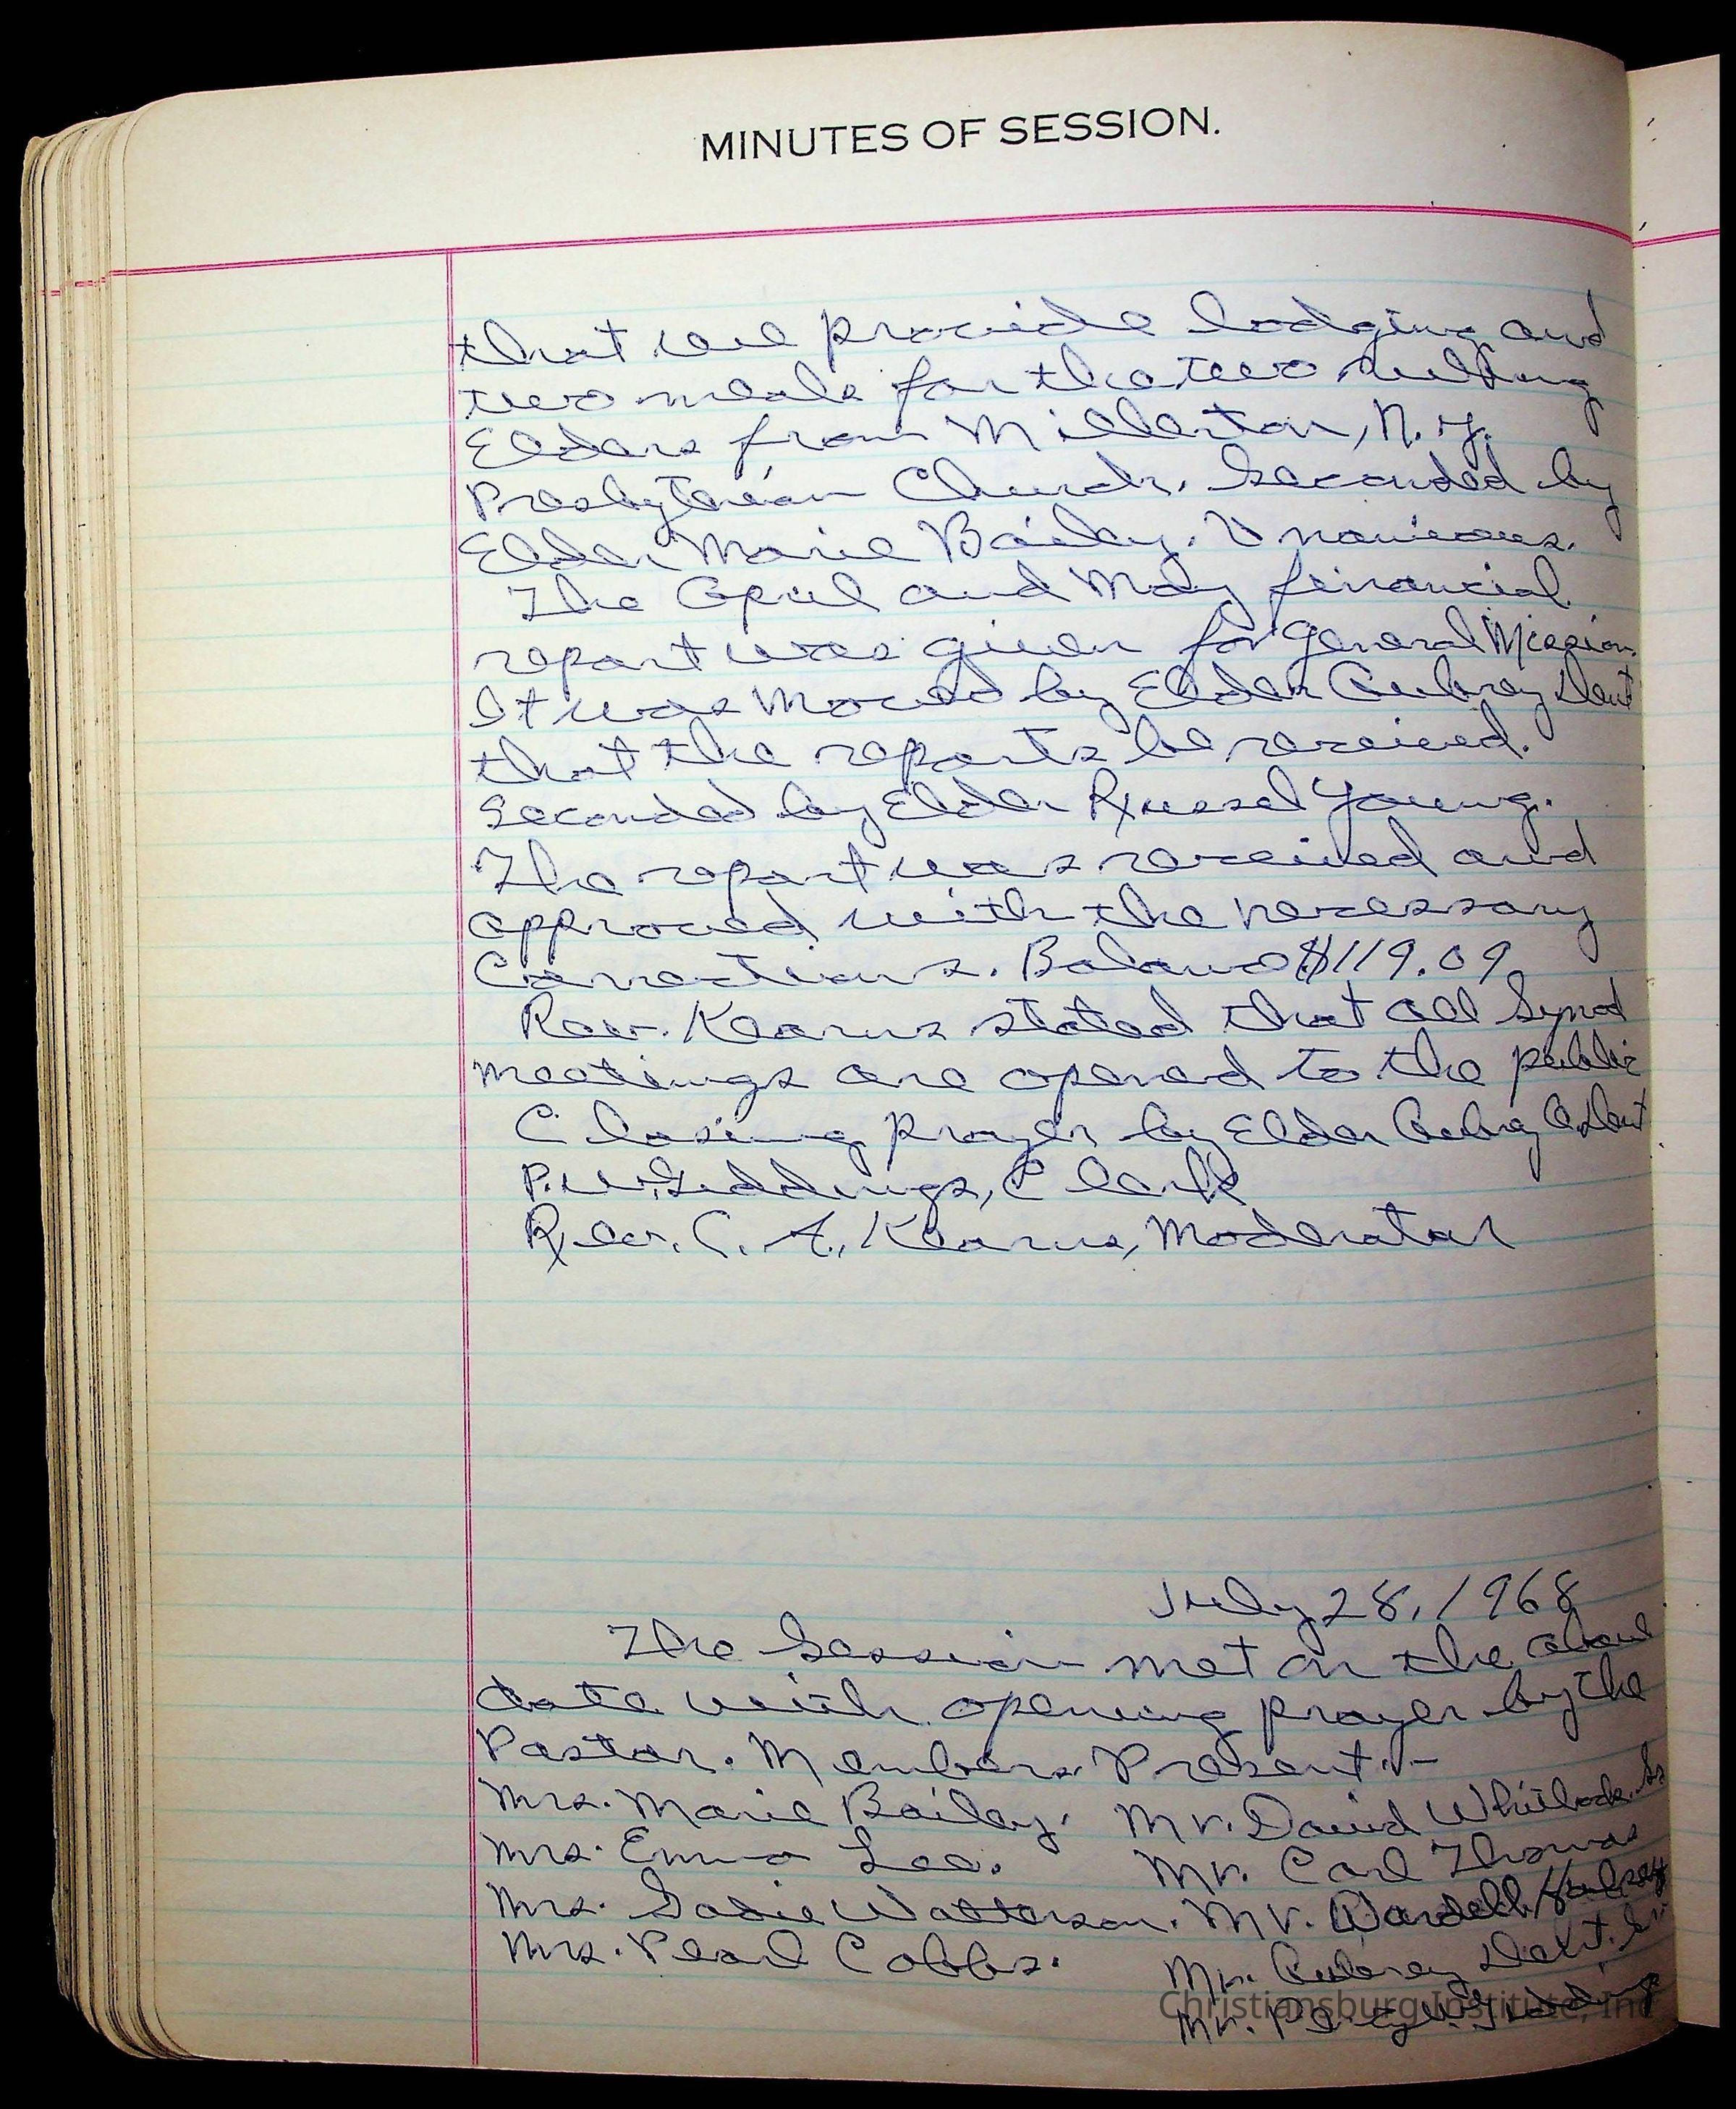 MINUTES OF SESSION.
that we provide lodging and
two meals for the two ruling
Elders from Millerton, N.Y.
Presbyterian Church. Seconded by
Elder Marie Bailey. Unanimous.
The April and May financial
report was given for General Mission.
It was moved by Elder Aubrey Dent
that the reports be received.
Seconded by Elder Russel Young.
The report was received and
approved with the necessary
Corrections. Balance $119.09
Rev. Kearns stated that all Synod
meetings are opened to the public
Closing prayer by Elder Aubrey Dent
P.W. Giddings, Clerk
Rev. C. A. Kearns, Moderator
July 28, 1968
The Session met on the above
date with opening prayer by the
Pastor. Members Present:-
Mrs. Marie Bailey. Mr. David Whitlock. Sr
Mrs. Emma Lee. Mr. Carl Thomas
Mrs. Sadie Watterson. Mr. Wardell
Mrs. Pearl Cobbs.
Mr. Aubrey Dent. Sr.
Mr. Percy W. Giddings
Christiansburg Institute, Inc